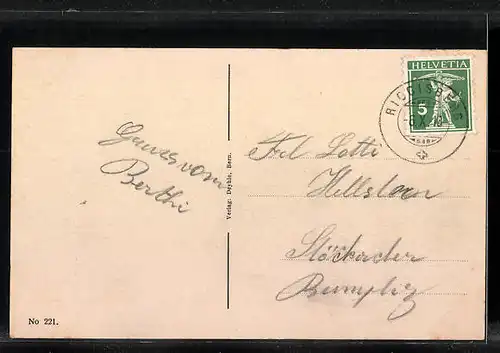 HELVETIA
5
RIGGISBERG
Gruss vom
Berthi
Frl Lotti
Stöckacker
Bümpliz
Verlag: Deyhle, Bern.
No 221.